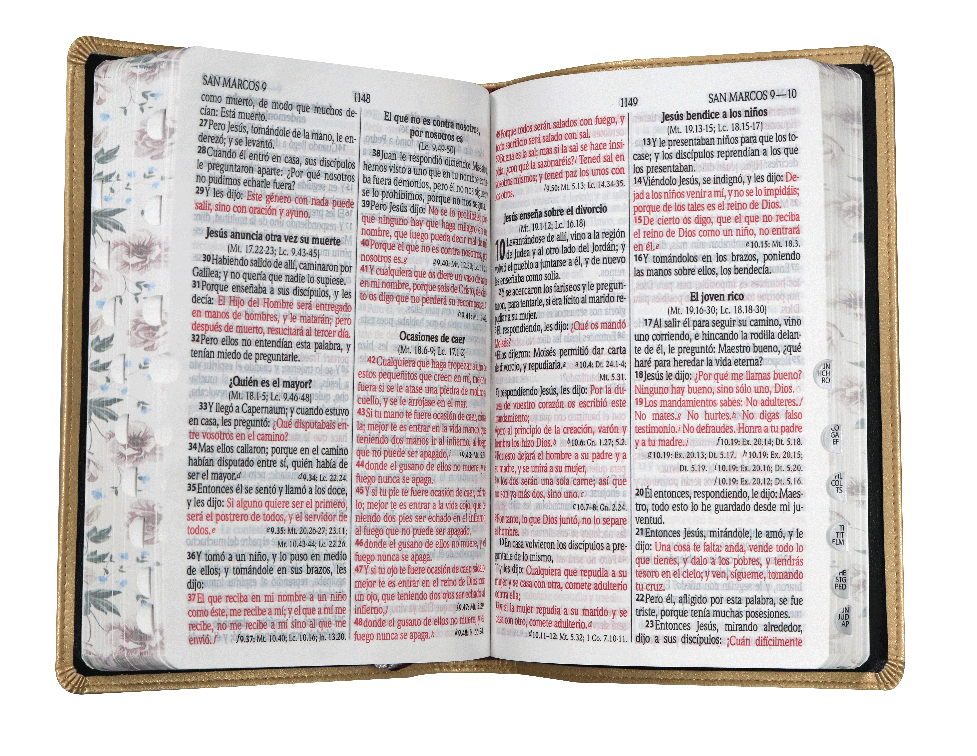 SAN MARCOS 9
1148
como muerto, de modo que muchos de-
cían: Está muerto.
27Pero Jesús, tomándole de la mano, le en-
derezó; y se levantó.
28Cuando él entró en casa, sus discípulos
le preguntaron aparte: ¿Por qué nosotros
no pudimos echarle fuera?
29Y les dijo: Este género con nada puede
salir, sino con oración y ayuno.
Jesús anuncia otra vez su muerte
(Mt. 17.22-23; Lc. 9.43-45)
30Habiendo salido de allí, caminaron por
Galilea; y no quería que nadie lo supiese.
31Porque enseñaba a sus discípulos, y les
decía: El Hijo del Hombre será entregado
en manos de hombres, y le matarán; pero
después de muerto, resucitará al tercer día.
32Pero ellos no entendían esta palabra, y
tenían miedo de preguntarle.
¿Quién es el mayor?
(Mt. 18.1-5; Lc. 9.46-48)
33Y llegó a Capernaum; y cuando estuvo
en casa, les preguntó: ¿Qué disputabais en-
tre vosotros en el camino?
34Mas ellos callaron; porque en el camino
habían disputado entre sí, quién había de
ser el mayor.d d9.34: Lc. 22.24.
35Entonces él se sentó y llamó a los doce,
y les dijo: Si alguno quiere ser el primero,
será el postrero de todos, y el servidor de
todos.e e9.35: Mt. 20.26-27; 23.11;
Mr. 10.43-44; Lc. 22.26.
36Y tomó a un niño, y lo puso en medio
de ellos; y tomándole en sus brazos, les
dijo:
37El que reciba en mi nombre a un niño
como éste, me recibe a mí; y el que a mí me
recibe, no me recibe a mí sino al que me
envió.f f9.37: Mt. 10.40; Lc. 10.16; Jn. 13.20.
El que no es contra nosotros,
por nosotros es
(Lc. 9.49-50)
38Juan le respondió diciendo: Maestro,
hemos visto a uno que en tu nombre
ba fuera demonios, pero él no nos
se lo prohibimos, porque no nos seguía.
39Pero Jesús dijo: No se lo prohibáis;
que ninguno hay que haga milagro en
nombre, que luego pueda decir mal de mí.
40Porque el que no es contra nosotros, por
nosotros es.g g9.40: Mt. 12.30; Lc. 11.23.
41Y cualquiera que os diere un vaso de agua
en mi nombre, porque sois de Cristo, de
to os digo que no perderá su recompensa.h
h9.41: Mt. 10.42.
Ocasiones de caer
(Mt. 18.6-9; Lc. 17.1-2)
42Cualquiera que haga tropezar a
estos pequeñitos que creen en mí,
fuera si se le atase una piedra de molino
cuello, y se le arrojase en el mar.
43Si tu mano te fuere ocasión de caer,
la; mejor te es entrar en la vida manco,
teniendo dos manos ir al infierno, al fuego
que no puede ser apagado,
44donde el gusano de ellos no muere,
fuego nunca se apaga.
45Y si tu pie te fuere ocasión de caer,
lo; mejor te es entrar a la vida cojo, que
niendo dos pies ser echado en el infierno,
al fuego que no puede ser apagado,
46donde el gusano de ellos no muere, y el
fuego nunca se apaga.
47Y si tu ojo te fuere ocasión de caer,
mejor te es entrar en el reino de Dios con
un ojo, que teniendo dos ojos ser echado al
infierno,
48donde el gusano de ellos no muere, y el
fuego nunca se apaga.
1149
SAN MARCOS 9—10
49Porque todos serán salados con fuego, y
todo sacrificio será salado con sal.
50Buena es la sal; mas si la sal se hace insí-
pida, ¿con qué la sazonaréis? Tened sal en
vosotros mismos; y tened paz los unos con
9.50: Mt. 5.13; Lc. 14.34-35.
Jesús enseña sobre el divorcio
(Mt. 19.1-12; Lc. 16.18)
10 Levantándose de allí, vino a la región
de Judea y al otro lado del Jordán; y
volvió el pueblo a juntarse a él, y de nuevo
les enseñaba como solía.
2Y se acercaron los fariseos y le pregun-
taron, para tentarle, si era lícito al marido re-
pudiar a su mujer.
3Él respondiendo, les dijo: ¿Qué os mandó
Moisés?
4Ellos dijeron: Moisés permitió dar carta
de divorcio, y repudiarla.a a10.4: Dt. 24.1-4;
Mt. 5.31.
5Y respondiendo Jesús, les dijo: Por la du-
reza de vuestro corazón os escribió este
mandamiento;
6pero al principio de la creación, varón y
hembra los hizo Dios.b b10.6: Gn. 1.27; 5.2.
7Por eso dejará el hombre a su padre y a
su madre, y se unirá a su mujer,
8y los dos serán una sola carne; así que
no son ya más dos, sino uno.c
c10.7-8: Gn. 2.24.
9Por tanto, lo que Dios juntó, no lo separe
el hombre.
10En casa volvieron los discípulos a pre-
guntarle de lo mismo,
11y les dijo: Cualquiera que repudia a su
mujer y se casa con otra, comete adulterio
contra ella;
12y si la mujer repudia a su marido y se
casa con otro, comete adulterio.d
d10.11-12: Mt. 5.32; 1 Co. 7.10-11.
Jesús bendice a los niños
(Mt. 19.13-15; Lc. 18.15-17)
13Y le presentaban niños para que los to-
case; y los discípulos reprendían a los que
los presentaban.
14Viéndolo Jesús, se indignó, y les dijo: De-
jad a los niños venir a mí, y no se lo impidáis;
porque de los tales es el reino de Dios.
15De cierto os digo, que el que no reciba
el reino de Dios como un niño, no entrará
en él.e e10.15: Mt. 18.3.
16Y tomándolos en los brazos, poniendo
las manos sobre ellos, los bendecía.
El joven rico
(Mt. 19.16-30; Lc. 18.18-30)
17Al salir él para seguir su camino, vino
uno corriendo, e hincando la rodilla delan-
te de él, le preguntó: Maestro bueno, ¿qué
haré para heredar la vida eterna?
18Jesús le dijo: ¿Por qué me llamas bueno?
Ninguno hay bueno, sino sólo uno, Dios.
19Los mandamientos sabes: No adulteres.f
No mates.g No hurtes.h No digas falso
testimonio.i No defraudes. Honra a tu padre
y a tu madre.j f10.19: Ex. 20.14; Dt. 5.18.
g10.19: Ex. 20.13; Dt. 5.17. h10.19: Ex. 20.15;
Dt. 5.19. i10.19: Ex. 20.16; Dt. 5.20.
j10.19: Ex. 20.12; Dt. 5.16.
20Él entonces, respondiendo, le dijo: Maes-
tro, todo esto lo he guardado desde mi ju-
ventud.
21Entonces Jesús, mirándole, le amó, y le
dijo: Una cosa te falta: anda, vende todo lo
que tienes, y dalo a los pobres, y tendrás
tesoro en el cielo; y ven, sígueme, tomando
tu cruz.
22Pero él, afligido por esta palabra, se fue
triste, porque tenía muchas posesiones.
23Entonces Jesús, mirando alrededor,
dijo a sus discípulos: ¡Cuán difícilmente